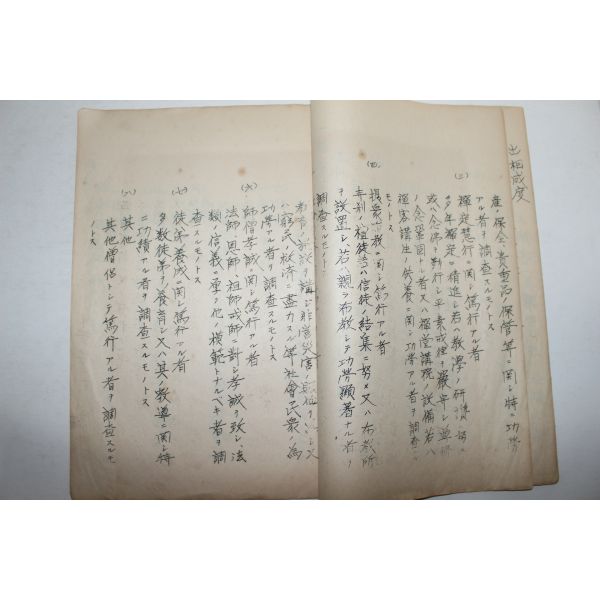 出栢咸度
産ノ保全、貴重品ノ保管等ニ関シ特ニ功労
アル者ヲ調査スルモノトス
(三) 禅定慧行ニ関シ篤行アル者
多年禅定ニ精進シ若ハ教学ノ研
或ハ念佛ヲ勤行シ平素戒律ヲ厳
ノ念鞏固ナル者又ハ禅堂講院ノ設備若ハ
禅客講生ノ供養ニ関シ功労アル者ヲ調査ス
モノトス
(四) 摂衆布教ニ関シ篤行アル者
寺刹ノ檀徒若ハ信徒ノ結集ニ努メ又ハ布教所
ヲ設置シ若ハ親ラ布教シテ功労顕著ナル者ヲ
調査スルモノトス
ノ施設ヲ講シ非常災害ノ
ハ窮民ノ救済ニ盡力スル等社會民衆ノ為
功労アル者ヲ調査スルモノトス
(六) 師僧孝誠ニ関シ篤行アル者
法師、恩師、祖師、戒師ニ對シ孝誠ヲ致シ、法
類ノ信義ニ厚ク他ノ模範トナルベキ者ヲ調
査スルモノトス
(七) 徒弟養成ニ関シ篤行アル者
多数徒弟ヲ養育シ又ハ其ノ教導ニ関シ特
ニ功績アル者ヲ調査スルモノトス
(八) 其他
其他僧侶トシテ篤行アル者ヲ調査スルモ
ノトス